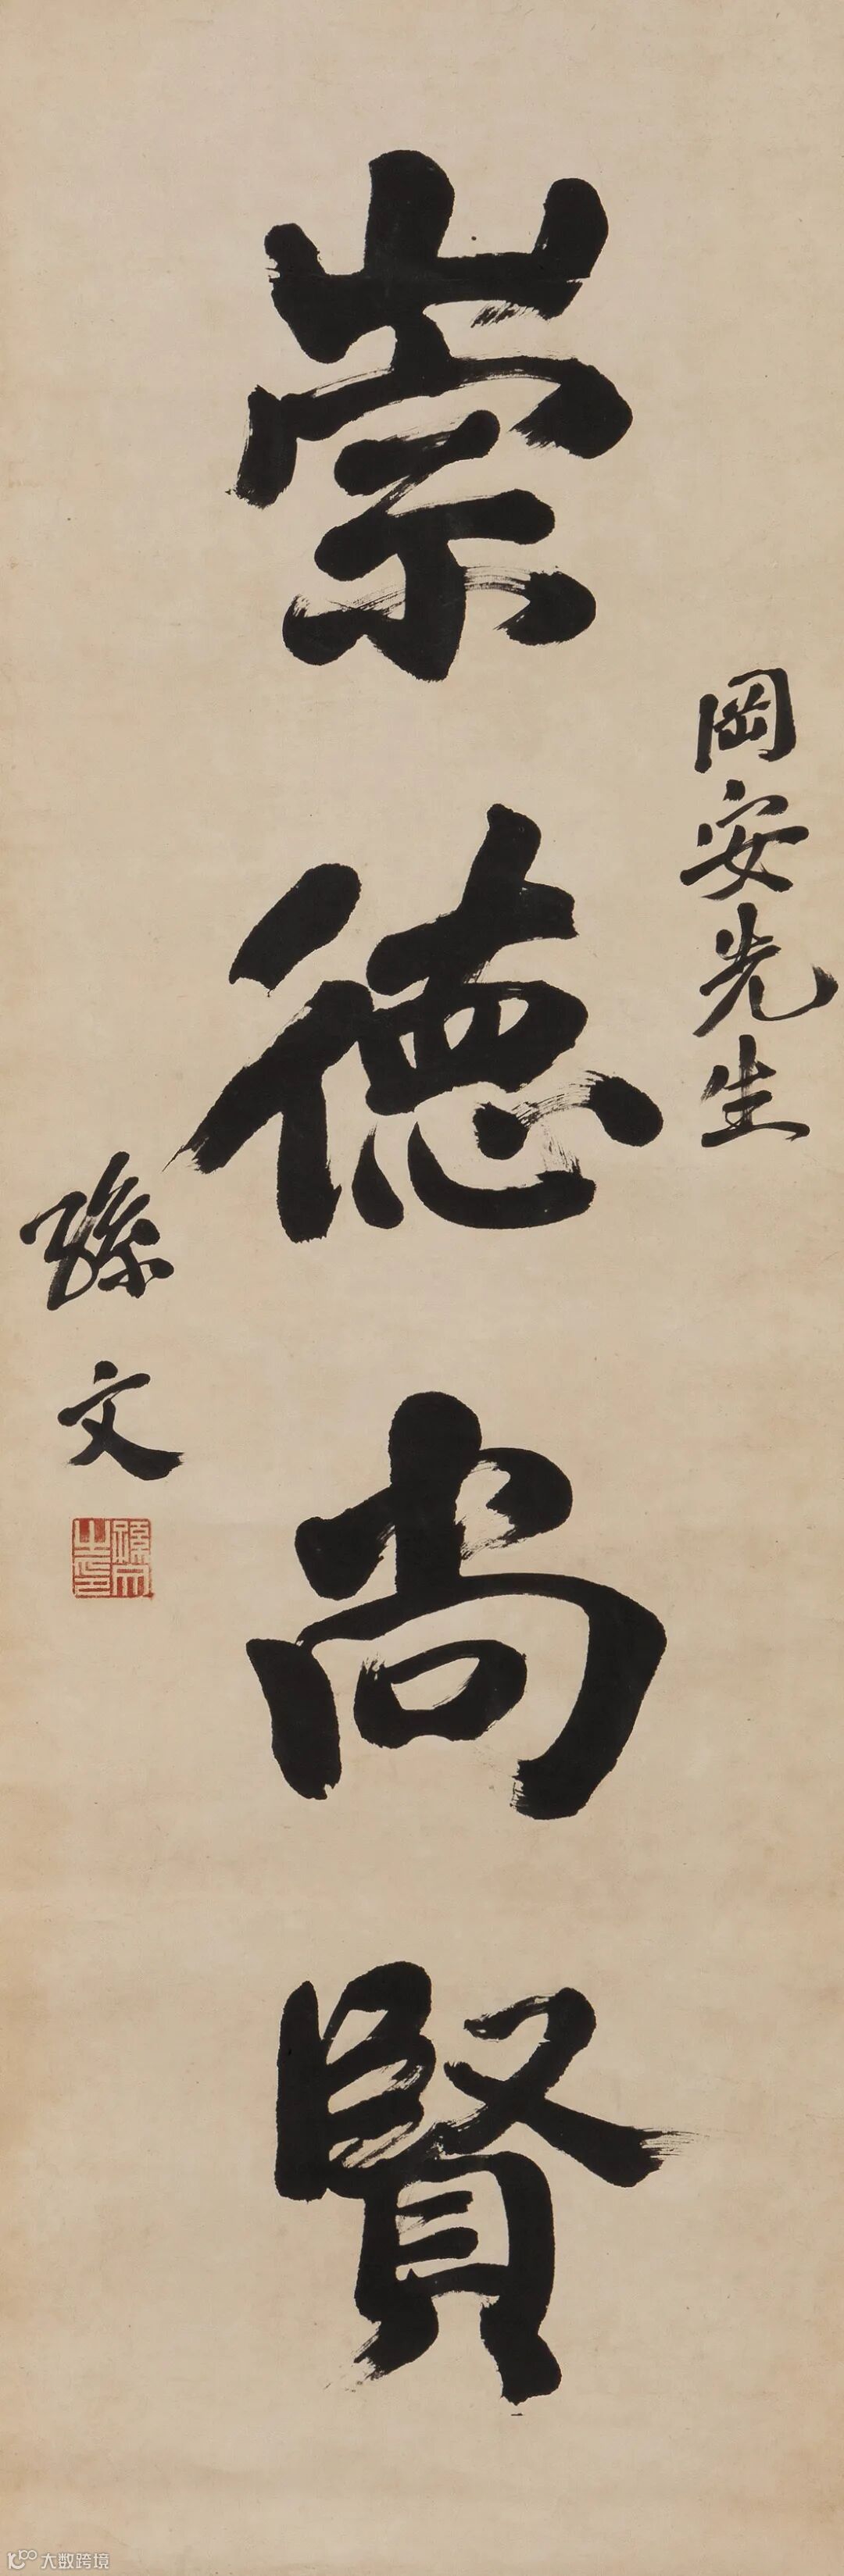 岡安先生
崇德尚賢
孫文
孫文之印
大数跨境